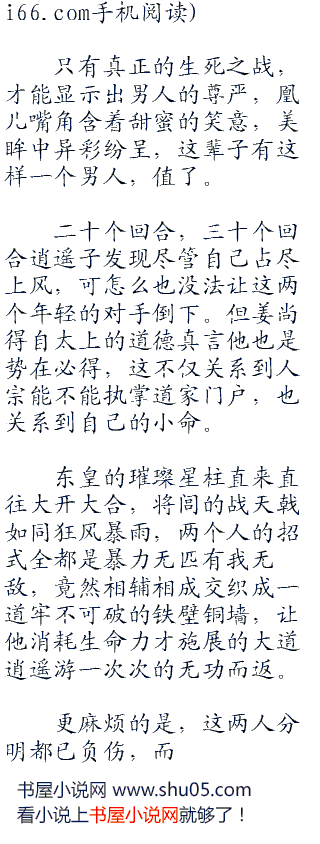 i66.com手机阅读)
只有真正的生死之战，
才能显示出男人的尊严，凰
儿嘴角含着甜蜜的笑意，美
眸中异彩纷呈，这辈子有这
样一个男人，值了。
二十个回合，三十个回
合逍遥子发现尽管自己占尽
上风，可怎么也没法让这两
个年轻的对手倒下。但姜尚
得自太上的道德真言他也是
势在必得，这不仅关系到人
宗能不能执掌道家门户，也
关系到自己的小命。
东皇的璀璨星柱直来直
往大开大合，将闾的战天戟
如同狂风暴雨，两个人的招
式全都是暴力无匹有我无
敌，竟然相辅相成交织成一
道牢不可破的铁壁铜墙，让
他消耗生命力才施展的大道
逍遥游一次次的无功而返。
更麻烦的是，这两人分
明都已负伤，而
书屋小说网 www.shu05.com
看小说上书屋小说网就够了！